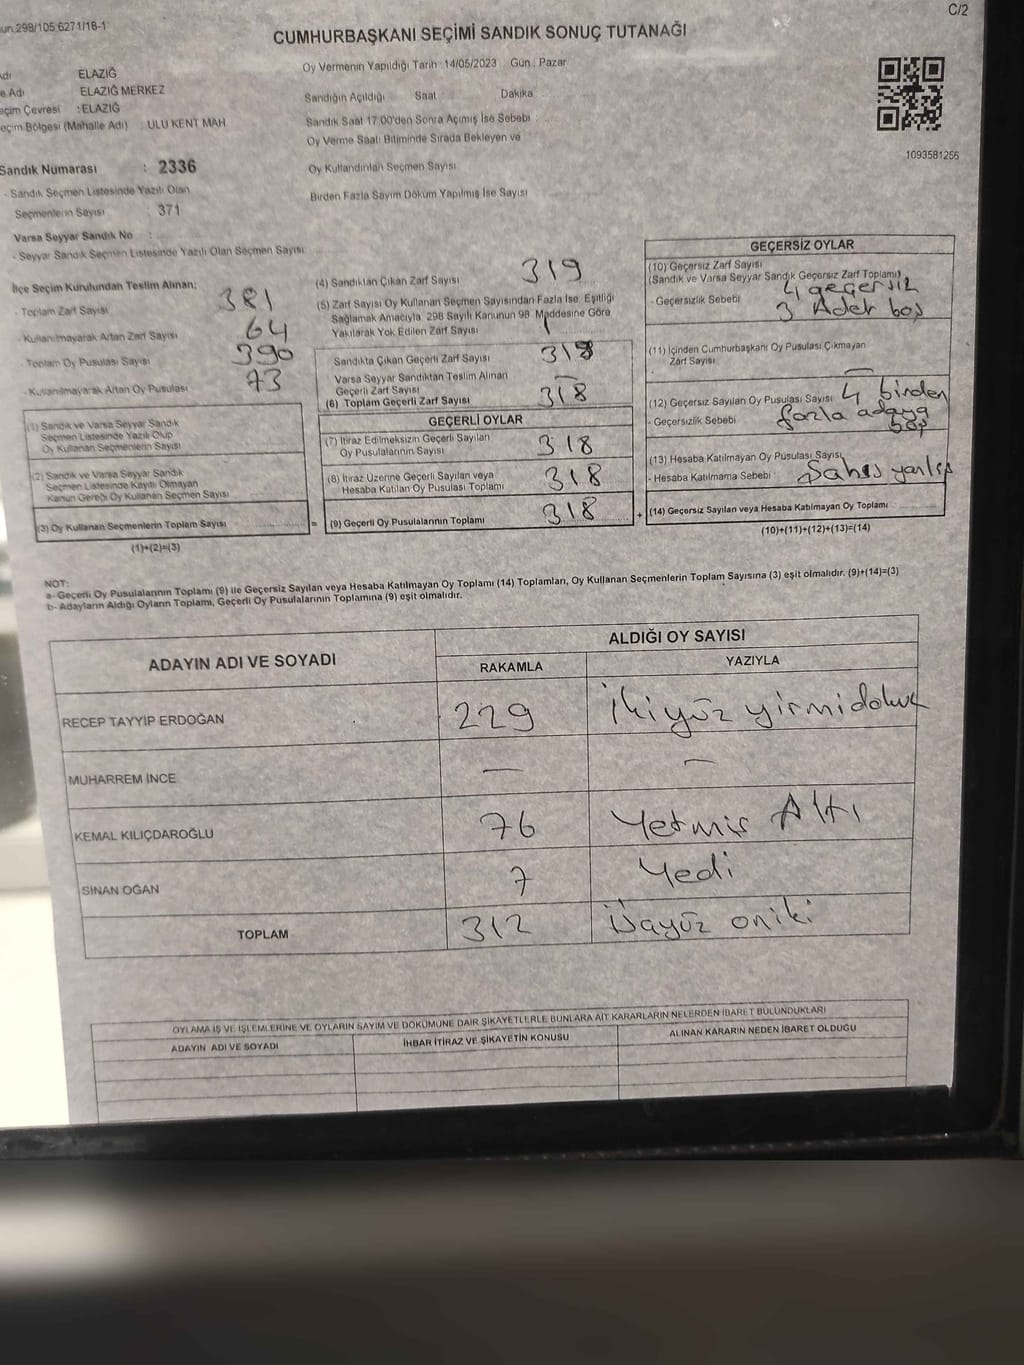 298/105.6271/18-1
C/2
CUMHURBAŞKANI SEÇİMİ SANDIK SONUÇ TUTANAĞI
Oy Vermenin Yapıldığı Tarih :14/05/2023 Gün : Pazar
ELAZIĞ
Adı ELAZIĞ MERKEZ
Çevresi : ELAZIĞ
Bölgesi (Mahalle Adı) : ULU KENT MAH
Sandık Numarası : 2336
- Sandık Seçmen Listesinde Yazılı Olan
Seçmenlerin Sayısı : 371
Varsa Seyyar Sandık No :
- Seyyar Sandık Seçmen Listesinde Yazılı Olan Seçmen Sayısı:
Sandığın Açıldığı Saat Dakika
Sandık Saat 17:00'den Sonra Açılmış İse Sebebi :
Oy Verme Saati Bitiminde Sırada Bekleyen ve
Oy Kullandırılan Seçmen Sayısı
Birden Fazla Sayım Döküm Yapılmış İse Sayısı
1093581256
İlçe Seçim Kurulundan Teslim Alınan;
- Toplam Zarf Sayısı 381
- Kullanılmayarak Artan Zarf Sayısı 64
Toplam Oy Pusulası Sayısı 390
- Kullanılmayarak Artan Oy Pusulası 73
(1) Sandık ve Varsa Seyyar Sandık
Seçmen Listesinde Yazılı Olup
Oy Kullanan Seçmenlerin Sayısı
(2) Sandık ve Varsa Seyyar Sandık
Seçmen Listesinde Kayıtlı Olmayan
Kanun Gereği Oy Kullanan Seçmen Sayısı
(3) Oy Kullanan Seçmenlerin Toplam Sayısı
(1)+(2)=(3)
(4) Sandıktan Çıkan Zarf Sayısı 319
(5) Zarf Sayısı Oy Kullanan Seçmen Sayısından Fazla İse, Eşitliği
Sağlamak Amacıyla, 298 Sayılı Kanunun 98. Maddesine Göre
Yakılarak Yok Edilen Zarf Sayısı 1
Sandıkta Çıkan Geçerli Zarf Sayısı 318
Varsa Seyyar Sandıktan Teslim Alınan
Geçerli Zarf Sayısı —
(6) Toplam Geçerli Zarf Sayısı 318
GEÇERLİ OYLAR
(7) İtiraz Edilmeksizin Geçerli Sayılan
Oy Pusulalarının Sayısı 318
(8) İtiraz Üzerine Geçerli Sayılan veya
Hesaba Katılan Oy Pusulası Toplamı 318
= (9) Geçerli Oy Pusulalarının Toplamı 318 +
GEÇERSİZ OYLAR
(10) Geçersiz Zarf Sayısı
(Sandık ve Varsa Seyyar Sandık Geçersiz Zarf Toplamı)
4 geçersiz
- Geçersizlik Sebebi 3 Adet boş
(11) İçinden Cumhurbaşkanı Oy Pusulası Çıkmayan
Zarf Sayısı —
(12) Geçersiz Sayılan Oy Pusulası Sayısı 4 birden
- Geçersizlik Sebebi fazla adaya
(13) Hesaba Katılmayan Oy Pusulası Sayısı
- Hesaba Katılmama Sebebi :
(14) Geçersiz Sayılan veya Hesaba Katılmayan Oy Toplamı
(10)+(11)+(12)+(13)=(14)
NOT:
a- Geçerli Oy Pusulalarının Toplamı (9) ile Geçersiz Sayılan veya Hesaba Katılmayan Oy Toplamı (14) Toplamları, Oy Kullanan Seçmenlerin Toplam Sayısına (3) eşit olmalıdır. (9)+(14)=(3)
b- Adayların Aldığı Oyların Toplamı, Geçerli Oy Pusulalarının Toplamına (9) eşit olmalıdır.
ADAYIN ADI VE SOYADI ALDIĞI OY SAYISI
RAKAMLA YAZIYLA
RECEP TAYYİP ERDOĞAN 229 İkiyüz yirmidokuz
MUHARREM İNCE — —
KEMAL KILIÇDAROĞLU 76 Yetmiş Altı
SİNAN OĞAN 7 Yedi
TOPLAM 312 Üçyüz oniki
OYLAMA İŞ VE İŞLEMLERİNE VE OYLARIN SAYIM VE DÖKÜMÜNE DAİR ŞİKAYETLERLE BUNLARA AİT KARARLARIN NELERDEN İBARET BULUNDUKLARI
ADAYIN ADI VE SOYADI İHBAR İTİRAZ VE ŞİKAYETİN KONUSU ALINAN KARARIN NEDEN İBARET OLDUĞU